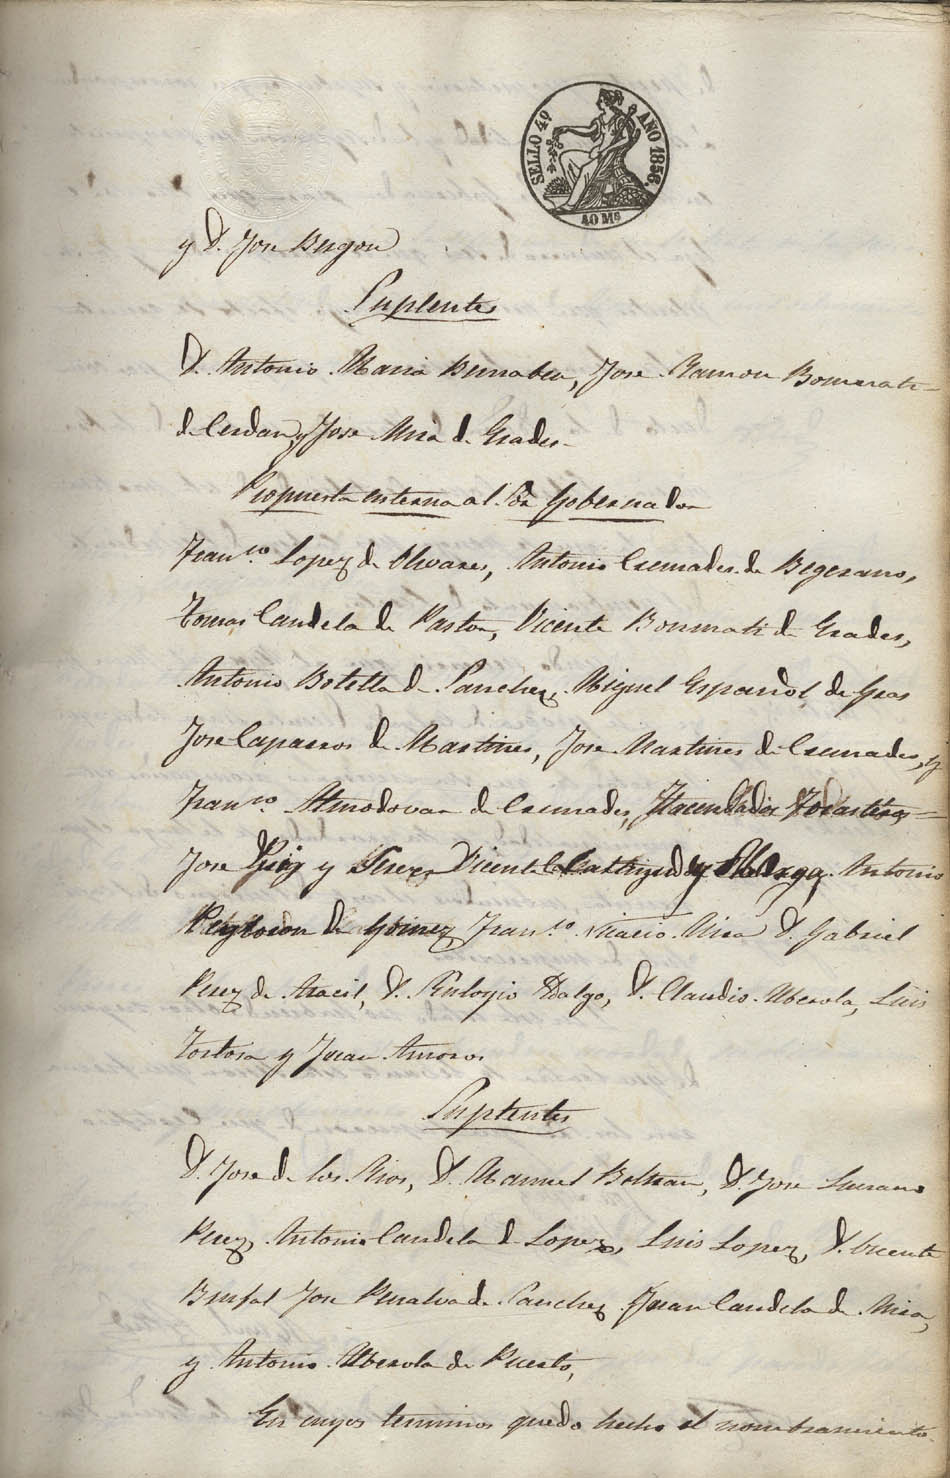 SELLO 4º AÑO 1856.
40 Ms
y D. Jose Burgon
Suplentes
D. Antonio Maria Bernabeu, Jose Ramon Bonmati
de Cerdan, y Jose Mira de Grades
Propuesta en terna al Sor Gobernador
Franco. Lopez de Olivares, Antonio Cremades de Begerano,
Tomas Candela de Pastor, Vicente Bonmati de Grades,
Antonio Botella de Sanchez, Miguel Español de Gras
Jose Caparros de Martines, Jose Martines de Cremades, y
Franco Almodovar de Cremades, Hacendados Forasteros
Jose Puig y Perez Vicente y Antonio
de Gomez, Franco. Mira D. Gabriel
Perez de Aracil, D. Eulogio Idalgo, D. Claudio Alberola, Luis
Tortosa y Juan Amoros
Suplentes
D. Jose de los Rios, D. Manuel Beltran, D. Jose Luciano
Perez, Antonio Candela de Lopez, Luis Lopez, D. Vicente
Jose Penalva de Sanchez Juan Candela de Mira,
y Antonio Alberola de Puerto,
En cuyos terminos quedo hecho el nombramiento